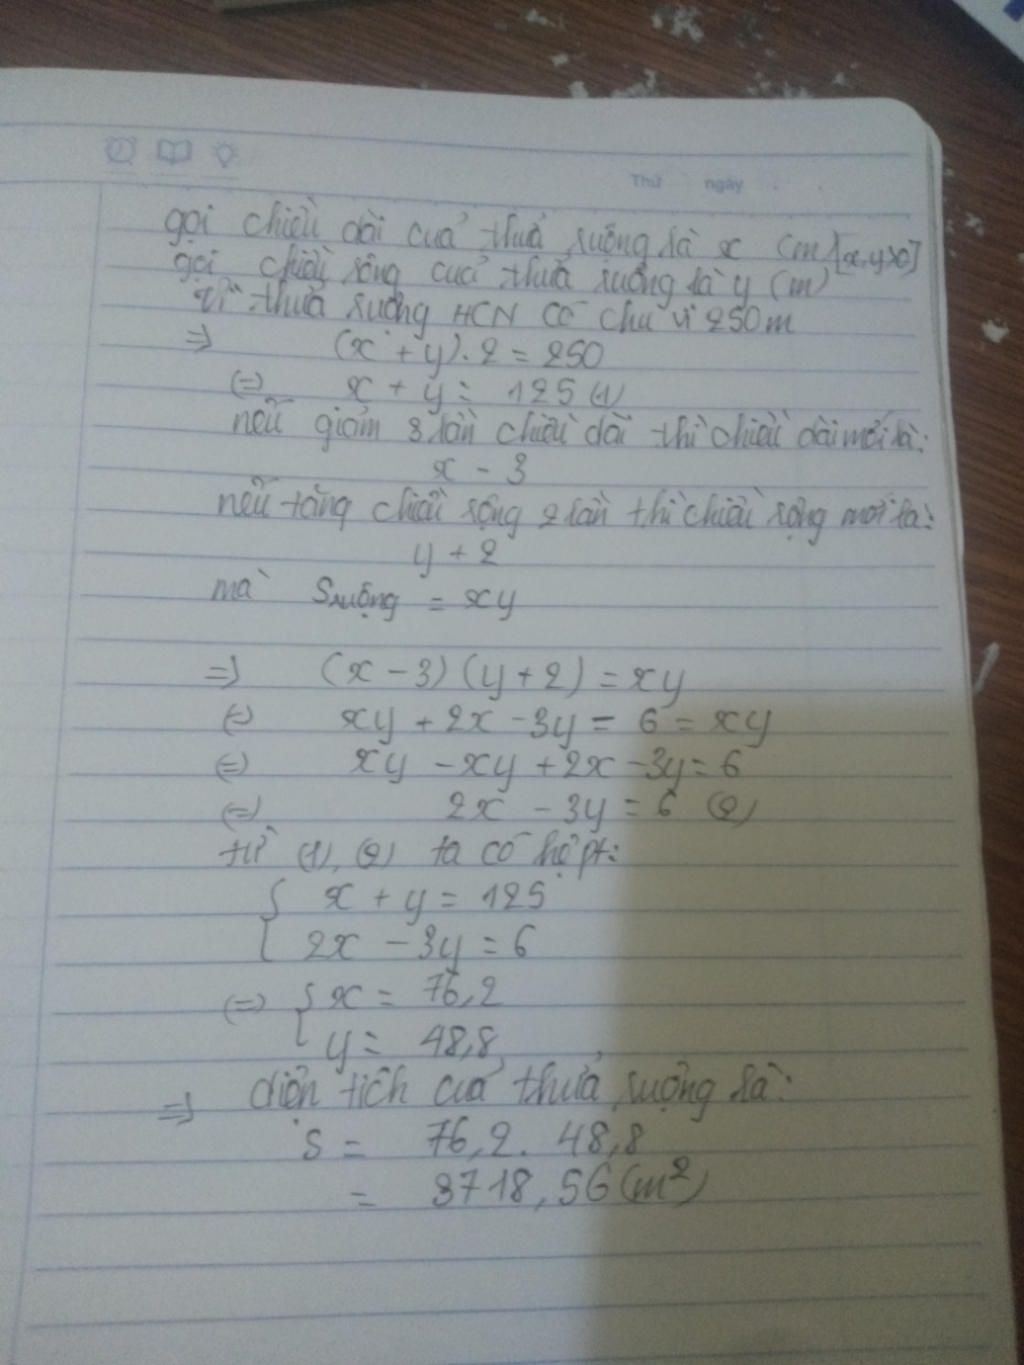 Thứ ngày
gọi chiều dài của thửa ruộng là x (m) [x,y>0]
gọi chiều rộng của thửa ruộng là y (m)
Vì thửa ruộng HCN có chu vi 250m
=> (x + y). 2 = 250
(=) x + y = 125 (1)
nếu giảm 3 lần chiều dài thì chiều dài mới là:
x - 3
nếu tăng chiều rộng 2 lần thì chiều rộng mới là:
y + 2
mà Sruộng = xy
=> (x - 3) (y + 2) = xy
(=) xy + 2x - 3y = 6 = xy
(=) xy - xy + 2x - 3y = 6
(=) 2x - 3y = 6 (2)
từ (1), (2) ta có hệ pt:
{ x + y = 125
2x - 3y = 6
(=) { x = 76,2
y = 48,8
=> diện tích của thửa ruộng là:
S = 76,2. 48,8
= 3718,56 (m²)